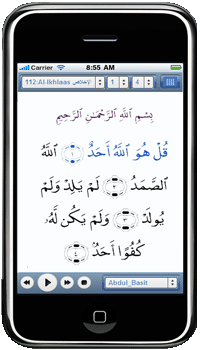 Carrier 8:55 AM
112:Al-Ikhlaas الإخلاص 1 4
بِسْمِ اللَّهِ الرَّحْمَـٰنِ الرَّحِيمِ
قُلْ هُوَ اللَّهُ أَحَدٌ ﴿١﴾ اللَّهُ
الصَّمَدُ ﴿٢﴾ لَمْ يَلِدْ وَلَمْ
يُولَدْ ﴿٣﴾ وَلَمْ يَكُن لَّهُ
كُفُوًا أَحَدٌ ﴿٤﴾
Abdul_Basit